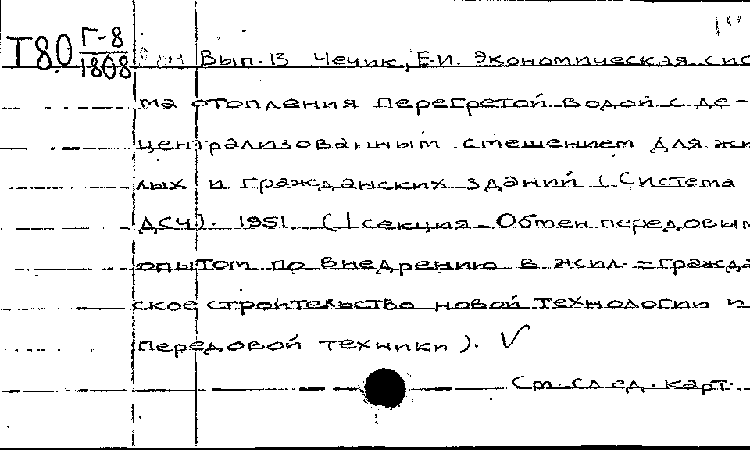 Т80 Г-8
1808
Вып. 13 Чечик, Е.И. Экономическая сис
ма отопления перегретой водой с де-
централизованным смешением для жи
лых и гражданских зданий (Система
ДСЧ). 1951. (1 секция - Обмен передовым
опытом по внедрению в жил.-гражда
ское строительство новой технологии и
передовой техники). V
См. след. карт.